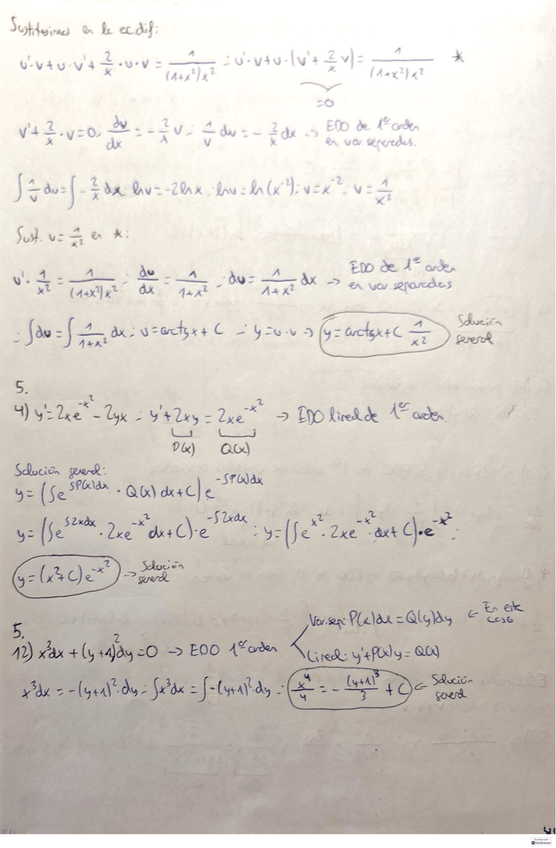 Sustituimos en la ec dif:
u'·v+u·v'+2/x·u·v = 1/((1+x²)x²) ; u'·v+u·(v'+2/x v) = 1/((1+x²)x²) *
=0
v'+2/x·v=0 ; dv/dx = -2/x v ; 1/v dv = -2/x dx → EDO de 1er orden
en var separadas.
∫1/v dv = ∫-2/x dx ; lnv=-2lnx ; lnv=ln(x⁻²) ; v=x⁻² ; v=1/x²
Sust. v=1/x² en *:
u'·1/x² = 1/((1+x²)x²) ; du/dx = 1/(1+x²) ; du = 1/(1+x²) dx → EDO de 1er orden
en var separadas
∫du = ∫1/(1+x²) dx ; u=arctgx+C ; y=u·v → y=arctgx+C 1/x² Solución
general
5.
4) y'=2xe^(-x²)-2yx ; y'+2xy = 2xe^(-x²) → EDO lineal de 1er orden.
P(x) Q(x)
Solución general:
y=(∫e^(∫P(x)dx)·Q(x)dx+C)e^(-∫P(x)dx)
y=(∫e^(∫2xdx)·2xe^(-x²)dx+C)·e^(-∫2xdx) ; y=(∫e^(x²)·2xe^(-x²)·dx+C)·e^(-x²) ;
y=(x²+C)e^(-x²) → Solución
general
5.
12) x³dx+(y+1)²dy=0 → EDO 1er orden
Var.sep: P(x)dx=Q(y)dy ← En este
caso
Lineal: y'+P(x)y=Q(x)
x³dx = -(y+1)²·dy ; ∫x³dx = ∫-(y+1)²·dy ; x⁴/4 = -(y+1)³/3 + C ← Solución
general